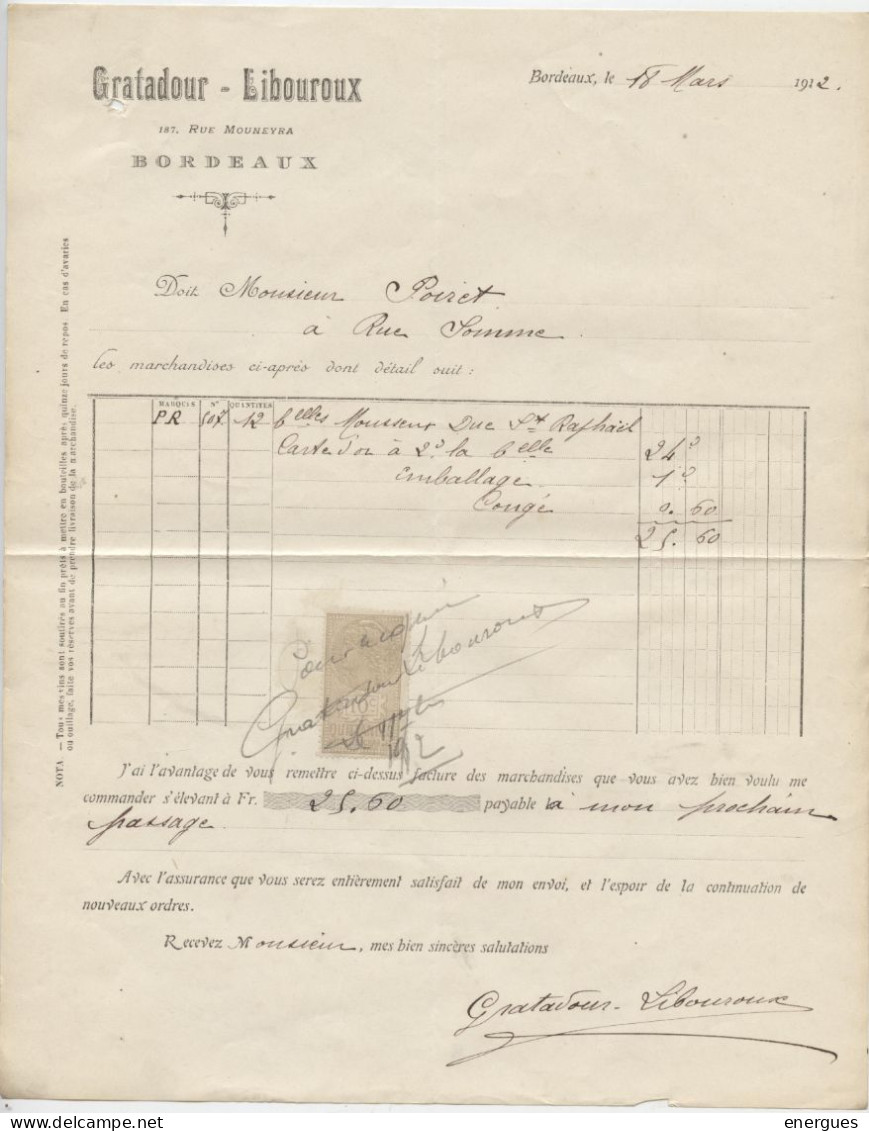 Gratadour - Libouroux
187, RUE MOUNEYRA
BORDEAUX
Bordeaux, le 18 Mars 1912.
Doit Monsieur Poiret
à Rue Somme
les marchandises ci-après dont détail suit :
MARQUES N° QUANTITÉS
PR 507 12 Belles Mousseux Duc St Raphaël
Carte d'or à 2 º la Belle 24 º
Emballage 1 º
Congé 0. 60
25. 60
Pour acquit
Gratadour Libouroux
1912
NOTA. — Tous mes vins sont soutirés au fin prêts à mettre en bouteilles après quinze jours de repos. En cas d'avaries
ou ouillage, faite vos réserves avant de prendre livraison de la marchandise.
J'ai l'avantage de vous remettre ci-dessus facture des marchandises que vous avez bien voulu me
commander s'élevant à Fr. 25.60 payable à mon prochain
passage.
Avec l'assurance que vous serez entièrement satisfait de mon envoi, et l'espoir de la continuation de
nouveaux ordres.
Recevez Monsieur, mes bien sincères salutations
Gratadour - Libouroux
delcampe.net
energues